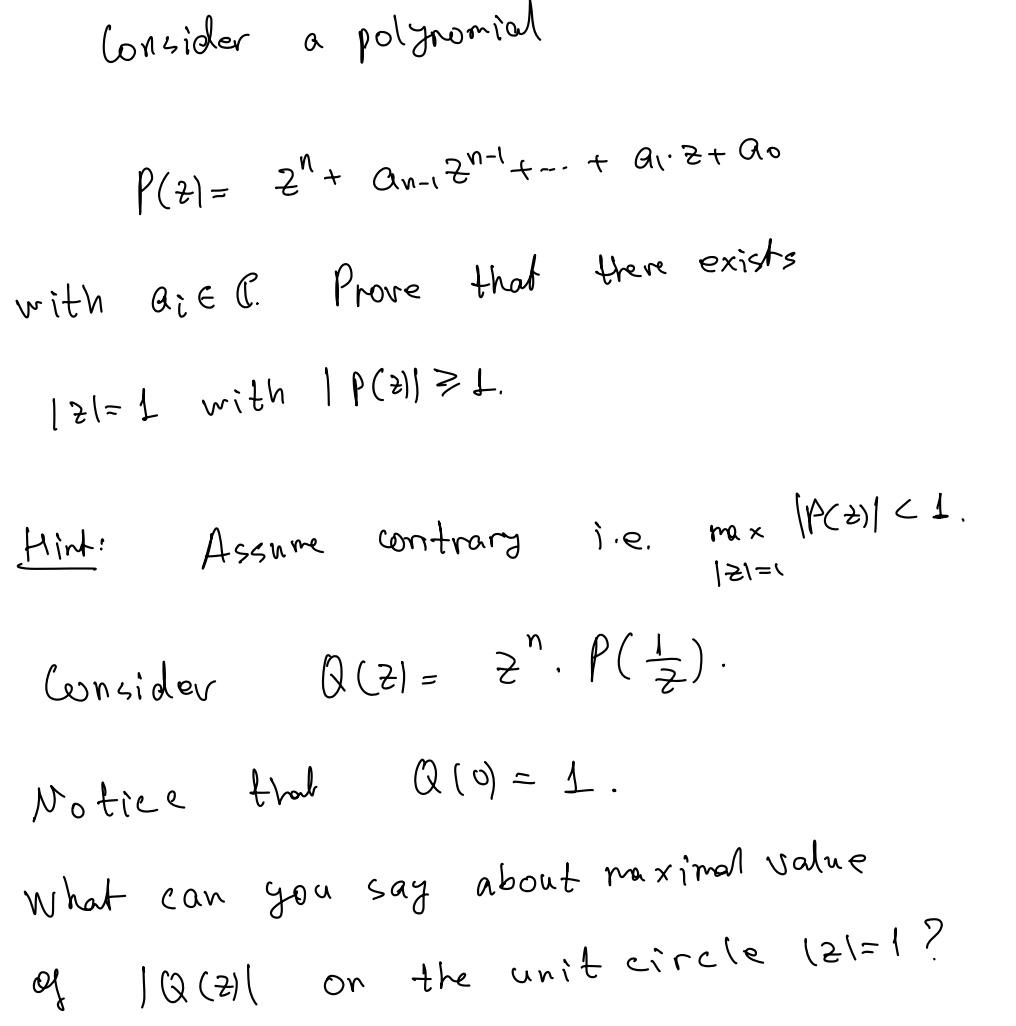 Consider a polynomial
P(z) = zⁿ + aₙ₋₁ zⁿ⁻¹ + ... + a₁·z + a₀
with aᵢ ∈ ℂ. Prove that there exists
|z| = 1 with |P(z)| ≥ 1.
Hint: Assume contrary i.e. max |P(z)| < 1.
|z|=1
Consider Q(z) = zⁿ · P(1/z).
Notice that Q(0) = 1.
What can you say about maximal value
of |Q(z)| on the unit circle |z|=1?